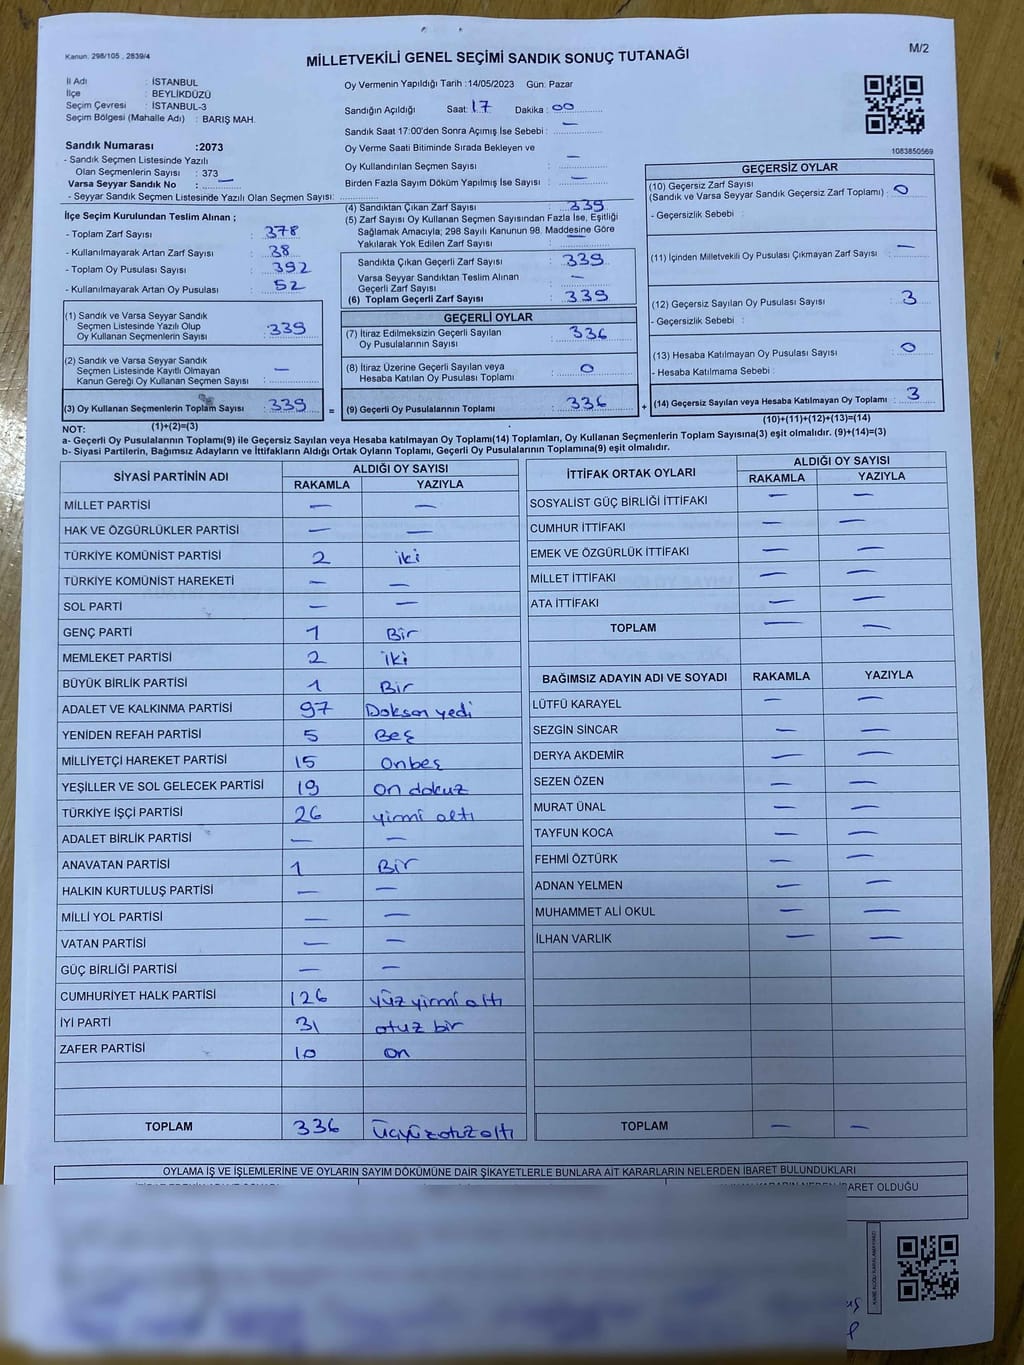 Kanun. 298/105 , 2839/4
M/2
MİLLETVEKİLİ GENEL SEÇİMİ SANDIK SONUÇ TUTANAĞI
İl Adı : İSTANBUL
İlçe : BEYLİKDÜZÜ
Seçim Çevresi : İSTANBUL-3
Seçim Bölgesi (Mahalle Adı) : BARIŞ MAH.
Sandık Numarası :2073
- Sandık Seçmen Listesinde Yazılı
Olan Seçmenlerin Sayısı : 373
Varsa Seyyar Sandık No : —
- Seyyar Sandık Seçmen Listesinde Yazılı Olan Seçmen Sayısı:
Oy Vermenin Yapıldığı Tarih :14/05/2023 Gün: Pazar
Sandığın Açıldığı Saat: 17 Dakika : 00
Sandık Saat 17:00'den Sonra Açımış İse Sebebi : —
Oy Verme Saati Bitiminde Sırada Bekleyen ve
Oy Kullandırılan Seçmen Sayısı : —
Birden Fazla Sayım Döküm Yapılmış İse Sayısı : —
1083850569
İlçe Seçim Kurulundan Teslim Alınan ;
- Toplam Zarf Sayısı : 378
- Kullanılmayarak Artan Zarf Sayısı : 38
- Toplam Oy Pusulası Sayısı : 392
- Kullanılmayarak Artan Oy Pusulası : 52
(1) Sandık ve Varsa Seyyar Sandık
Seçmen Listesinde Yazılı Olup
Oy Kullanan Seçmenlerin Sayısı : 339
(2) Sandık ve Varsa Seyyar Sandık
Seçmen Listesinde Kayıtlı Olmayan
Kanun Gereği Oy Kullanan Seçmen Sayısı : —
(3) Oy Kullanan Seçmenlerin Toplam Sayısı : 339
(1)+(2)=(3)
(4) Sandıktan Çıkan Zarf Sayısı : 339
(5) Zarf Sayısı Oy Kullanan Seçmen Sayısından Fazla İse, Eşitliği
Sağlamak Amacıyla; 298 Sayılı Kanunun 98. Maddesine Göre
Yakılarak Yok Edilen Zarf Sayısı : —
Sandıkta Çıkan Geçerli Zarf Sayısı : 339
Varsa Seyyar Sandıktan Teslim Alınan
Geçerli Zarf Sayısı : —
(6) Toplam Geçerli Zarf Sayısı : 339
GEÇERLİ OYLAR
(7) İtiraz Edilmeksizin Geçerli Sayılan
Oy Pusulalarının Sayısı : 336
(8) İtiraz Üzerine Geçerli Sayılan veya
Hesaba Katılan Oy Pusulası Toplamı : 0
= (9) Geçerli Oy Pusulalarının Toplamı : 336
GEÇERSİZ OYLAR
(10) Geçersiz Zarf Sayısı
(Sandık ve Varsa Seyyar Sandık Geçersiz Zarf Toplamı) : 0
- Geçersizlik Sebebi :
(11) İçinden Milletvekili Oy Pusulası Çıkmayan Zarf Sayısı : —
(12) Geçersiz Sayılan Oy Pusulası Sayısı : 3
- Geçersizlik Sebebi :
(13) Hesaba Katılmayan Oy Pusulası Sayısı : 0
- Hesaba Katılmama Sebebi :
+ (14) Geçersiz Sayılan veya Hesaba Katılmayan Oy Toplamı : 3
(10)+(11)+(12)+(13)=(14)
NOT:
a- Geçerli Oy Pusulalarının Toplamı(9) ile Geçersiz Sayılan veya Hesaba katılmayan Oy Toplamı(14) Toplamları, Oy Kullanan Seçmenlerin Toplam Sayısına(3) eşit olmalıdır. (9)+(14)=(3)
b- Siyasi Partilerin, Bağımsız Adayların ve İttifakların Aldığı Ortak Oyların Toplamı, Geçerli Oy Pusulalarının Toplamına(9) eşit olmalıdır.
SİYASİ PARTİNİN ADI ALDIĞI OY SAYISI
RAKAMLA YAZIYLA
MİLLET PARTİSİ — —
HAK VE ÖZGÜRLÜKLER PARTİSİ — —
TÜRKİYE KOMÜNİST PARTİSİ 2 iki
TÜRKİYE KOMÜNİST HAREKETİ — —
SOL PARTİ — —
GENÇ PARTİ 1 Bir
MEMLEKET PARTİSİ 2 iki
BÜYÜK BİRLİK PARTİSİ 1 Bir
ADALET VE KALKINMA PARTİSİ 97 Doksan yedi
YENİDEN REFAH PARTİSİ 5 Beş
MİLLİYETÇİ HAREKET PARTİSİ 15 Onbeş
YEŞİLLER VE SOL GELECEK PARTİSİ 19 on dokuz
TÜRKİYE İŞÇİ PARTİSİ 26 yirmi altı
ADALET BİRLİK PARTİSİ — —
ANAVATAN PARTİSİ 1 Bir
HALKIN KURTULUŞ PARTİSİ — —
MİLLİ YOL PARTİSİ — —
VATAN PARTİSİ — —
GÜÇ BİRLİĞİ PARTİSİ — —
CUMHURİYET HALK PARTİSİ 126 yüz yirmi altı
İYİ PARTİ 31 otuz bir
ZAFER PARTİSİ 10 on
TOPLAM 336 üçyüzotuzaltı
İTTİFAK ORTAK OYLARI ALDIĞI OY SAYISI
RAKAMLA YAZIYLA
SOSYALİST GÜÇ BİRLİĞİ İTTİFAKI — —
CUMHUR İTTİFAKI — —
EMEK VE ÖZGÜRLÜK İTTİFAKI — —
MİLLET İTTİFAKI — —
ATA İTTİFAKI — —
TOPLAM — —
BAĞIMSIZ ADAYIN ADI VE SOYADI RAKAMLA YAZIYLA
LÜTFÜ KARAYEL — —
SEZGİN SİNCAR — —
DERYA AKDEMİR — —
SEZEN ÖZEN — —
MURAT ÜNAL — —
TAYFUN KOCA — —
FEHMİ ÖZTÜRK — —
ADNAN YELMEN — —
MUHAMMET ALİ OKUL — —
İLHAN VARLIK — —
TOPLAM — —
OYLAMA İŞ VE İŞLEMLERİNE VE OYLARIN SAYIM DÖKÜMÜNE DAİR ŞİKAYETLERLE BUNLARA AİT KARARLARIN NELERDEN İBARET BULUNDUKLARI
KARARIN NEDEN İBARET OLDUĞU